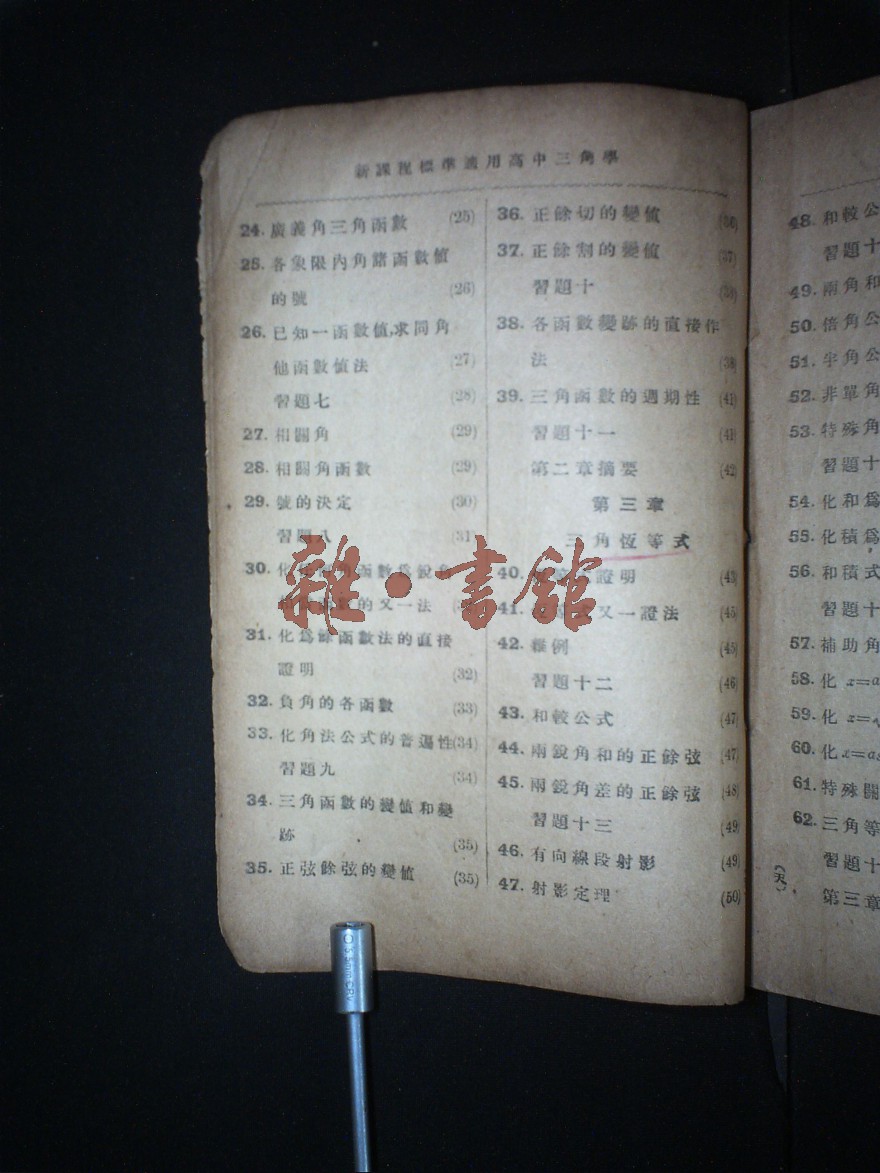 新課程標準適用高中三角學
24. 廣義角三角函數 (25)
25. 各象限內角諸函數值
的號 (26)
26. 已知一函數值,求同角
他函數值法 (27)
習題七 (28)
27. 相關角 (29)
28. 相關角函數 (29)
29. 號的決定 (30)
習題八 (31)
30. 化
函數的又一法
31. 化爲餘函數法的直接
證明 (32)
32. 負角的各函數 (33)
33. 化角法公式的普遍性(34)
習題九 (34)
34. 三角函數的變值和變
跡 (35)
35. 正弦餘弦的變值 (35)
36. 正餘切的變值 (36)
37. 正餘割的變值 (37)
習題十 (38)
38. 各函數變跡的直接作
法 (38)
39. 三角函數的週期性 (41)
習題十一 (41)
第二章摘要 (42)
第三章
三角恆等式
40. 證明 (43)
41. 又一證法 (45)
42. 雜例 (45)
習題十二 (46)
43. 和較公式 (47)
44. 兩銳角和的正餘弦 (47)
45. 兩銳角差的正餘弦 (48)
習題十三 (49)
46. 有向線段射影 (49)
47. 射影定理 (50)
雜·書館
48. 和較公
習題十
49. 兩角和
50. 倍角公
51. 半角公
52. 非單角
53. 特殊角
習題十
54. 化和爲
55. 化積爲
56. 和積式
習題十
57. 補助角
58. 化 x=a
59. 化 x=
60. 化 x=a
61. 特殊關
62. 三角等
習題十
第三章
(天)